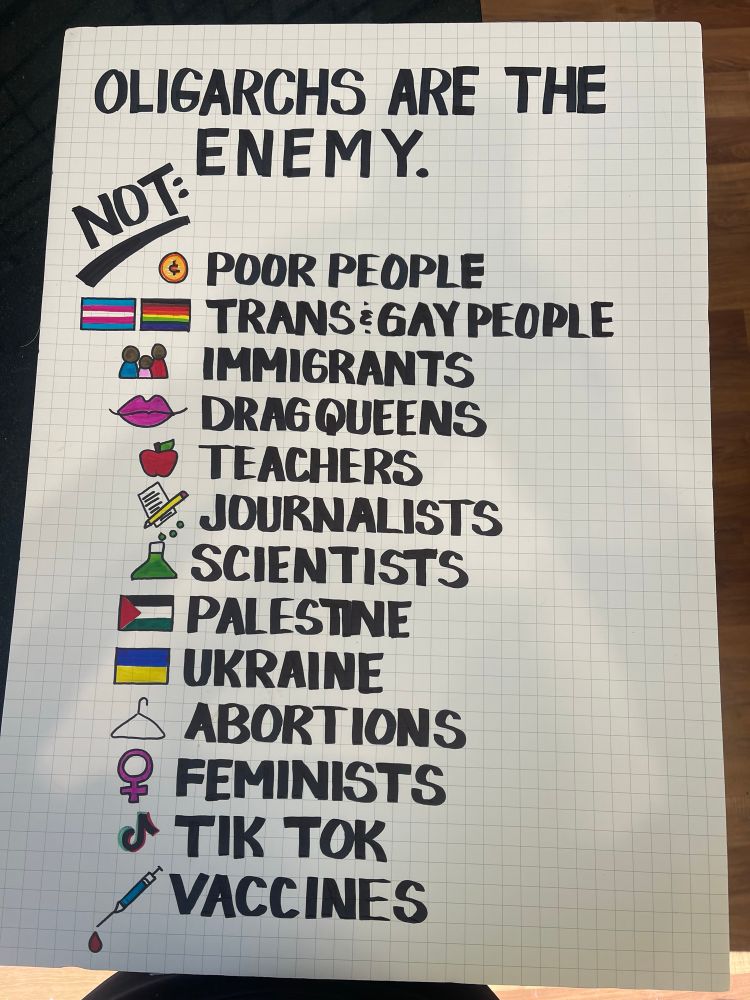 OLIGARCHS ARE THE
ENEMY.
NOT:
¢ POOR PEOPLE
TRANS & GAY PEOPLE
IMMIGRANTS
DRAG QUEENS
TEACHERS
JOURNALISTS
SCIENTISTS
PALESTINE
UKRAINE
ABORTIONS
FEMINISTS
TIK TOK
VACCINES